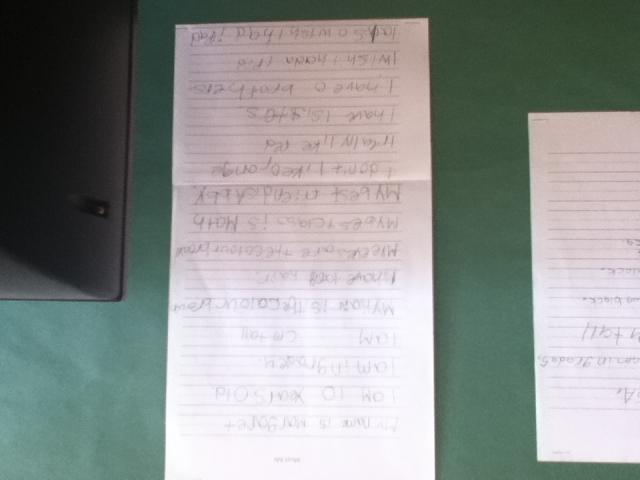 About Me
My name is Margaret
I am 10 years old
I am in grade 4.
I am cm tall
My hair is the colour brown
I have long hair.
My eyes are the colour brown
My best class is Math
My best friend is Abby
I don't like orange
I really like red
I have 1
I have 0 brothers
I wish I had a
I also wish I had iPad
in grade 5.
tall
black.
black.